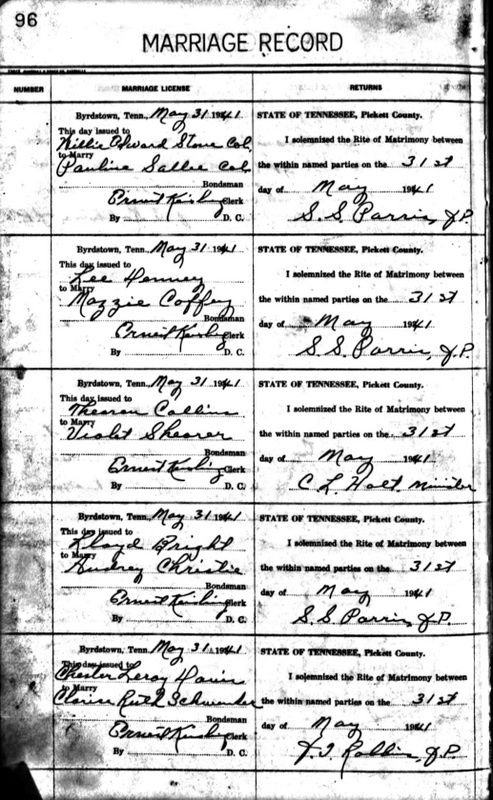 96
MARRIAGE RECORD
NUMBER MARRIAGE LICENSE RETURNS
Byrdstown, Tenn., May 31 1941
This day issued to
Willie Edward Stone Col.
to Marry
Pauline Sallee Col.
Bondsman
Ernest Clerk
By D. C.
STATE OF TENNESSEE, Pickett County.
I solemnized the Rite of Matrimony between
the within named parties on the 31st
day of May 1941
S. S. Parris, J.P.
Byrdstown, Tenn., May 31 1941
This day issued to
Lee Denney
to Marry
Mazzie Coffey
Bondsman
Ernest Clerk
By D. C.
STATE OF TENNESSEE, Pickett County.
I solemnized the Rite of Matrimony between
the within named parties on the 31st
day of May 1941
S. S. Parris, J.P.
Byrdstown, Tenn., May 31 1941
This day issued to
Collins
to Marry
Violet Shearer
Bondsman
Ernest Clerk
By D. C.
STATE OF TENNESSEE, Pickett County.
I solemnized the Rite of Matrimony between
the within named parties on the 31st
day of May 1941
C. L. Holt Minister
Byrdstown, Tenn., May 31 1941
This day issued to
Bright
to Marry
Audrey Christie
Bondsman
Ernest Clerk
By D. C.
STATE OF TENNESSEE, Pickett County.
I solemnized the Rite of Matrimony between
the within named parties on the 31st
day of May 1941
S. S. Parris, J.P.
Byrdstown, Tenn., May 31 1941
This day issued to
Chester Leroy
to Marry
Ruth
Bondsman
Ernest Clerk
By D. C.
STATE OF TENNESSEE, Pickett County.
I solemnized the Rite of Matrimony between
the within named parties on the 31st
day of May 1941
Robbins, J.P.